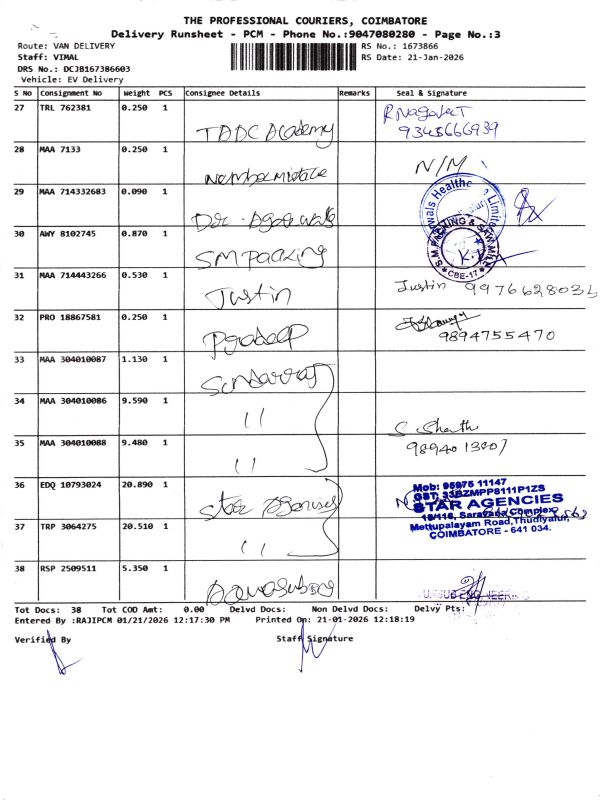 THE PROFESSIONAL COURIERS, COIMBATORE
Delivery Runsheet - PCM - Phone No.:9047080280 - Page No.:3
Route: VAN DELIVERY
RS No.: 1673866
Staff: VIMAL
RS Date: 21-Jan-2026
DRS No.: DCJB1673B6603
Vehicle: EV Delivery
S No Consignment No Weight PCS Consignee Details Remarks Seal & Signature
27 TRL 762381 0.250 1 TADC Academy
9345666939
28 MAA 7133 0.250 1 N/M
29 MAA 714332683 0.090 1 Dr. Agarwals
30 AWY 8102745 0.870 1 SM Packing
S.M.PACKING & SAW MILL
CBE-17
31 MAA 714443266 0.530 1 Justin Justin
32 PRO 18867581 0.250 1 Pradeep 9894755470
33 MAA 304010087 1.130 1 Sundarraj
34 MAA 304010086 9.590 1 "
35 MAA 304010088 9.480 1 "
36 EDQ 10793024 20.890 1 Star
Mob: 95975 11147
GST: 33BZMPP8111P1ZS
STAR AGENCIES
19/116, Saravana Complex,
Mettupalayam Road, Thudiyalur,
COIMBATORE - 641 034.
37 TRP 3064275 20.510 1 "
38 RSP 2509511 5.350 1
Tot Docs: 38 Tot COD Amt: 0.00 Delvd Docs: Non Delvd Docs: Delvy Pts:
Entered By :RAJIPCM 01/21/2026 12:17:30 PM Printed On: 21-01-2026 12:18:19
Verified By Staff Signature